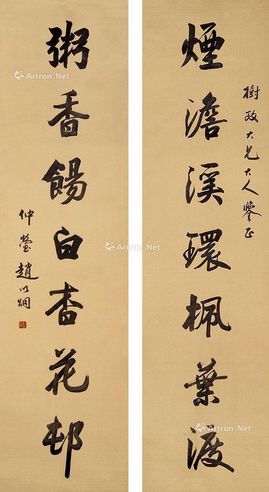 煙澹溪環楓葉渡
樹政大兄大人鑒正
粥香餳白杏花邨
仲瑩趙以炯
Artron.Net
Artron.Net
Artron.Net